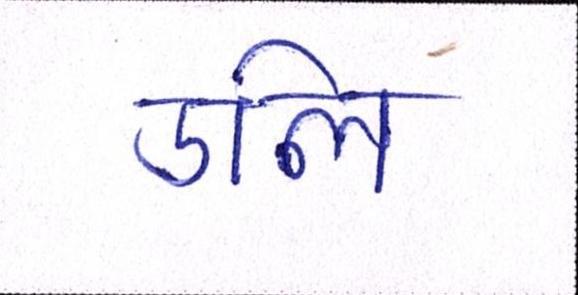 ডলি